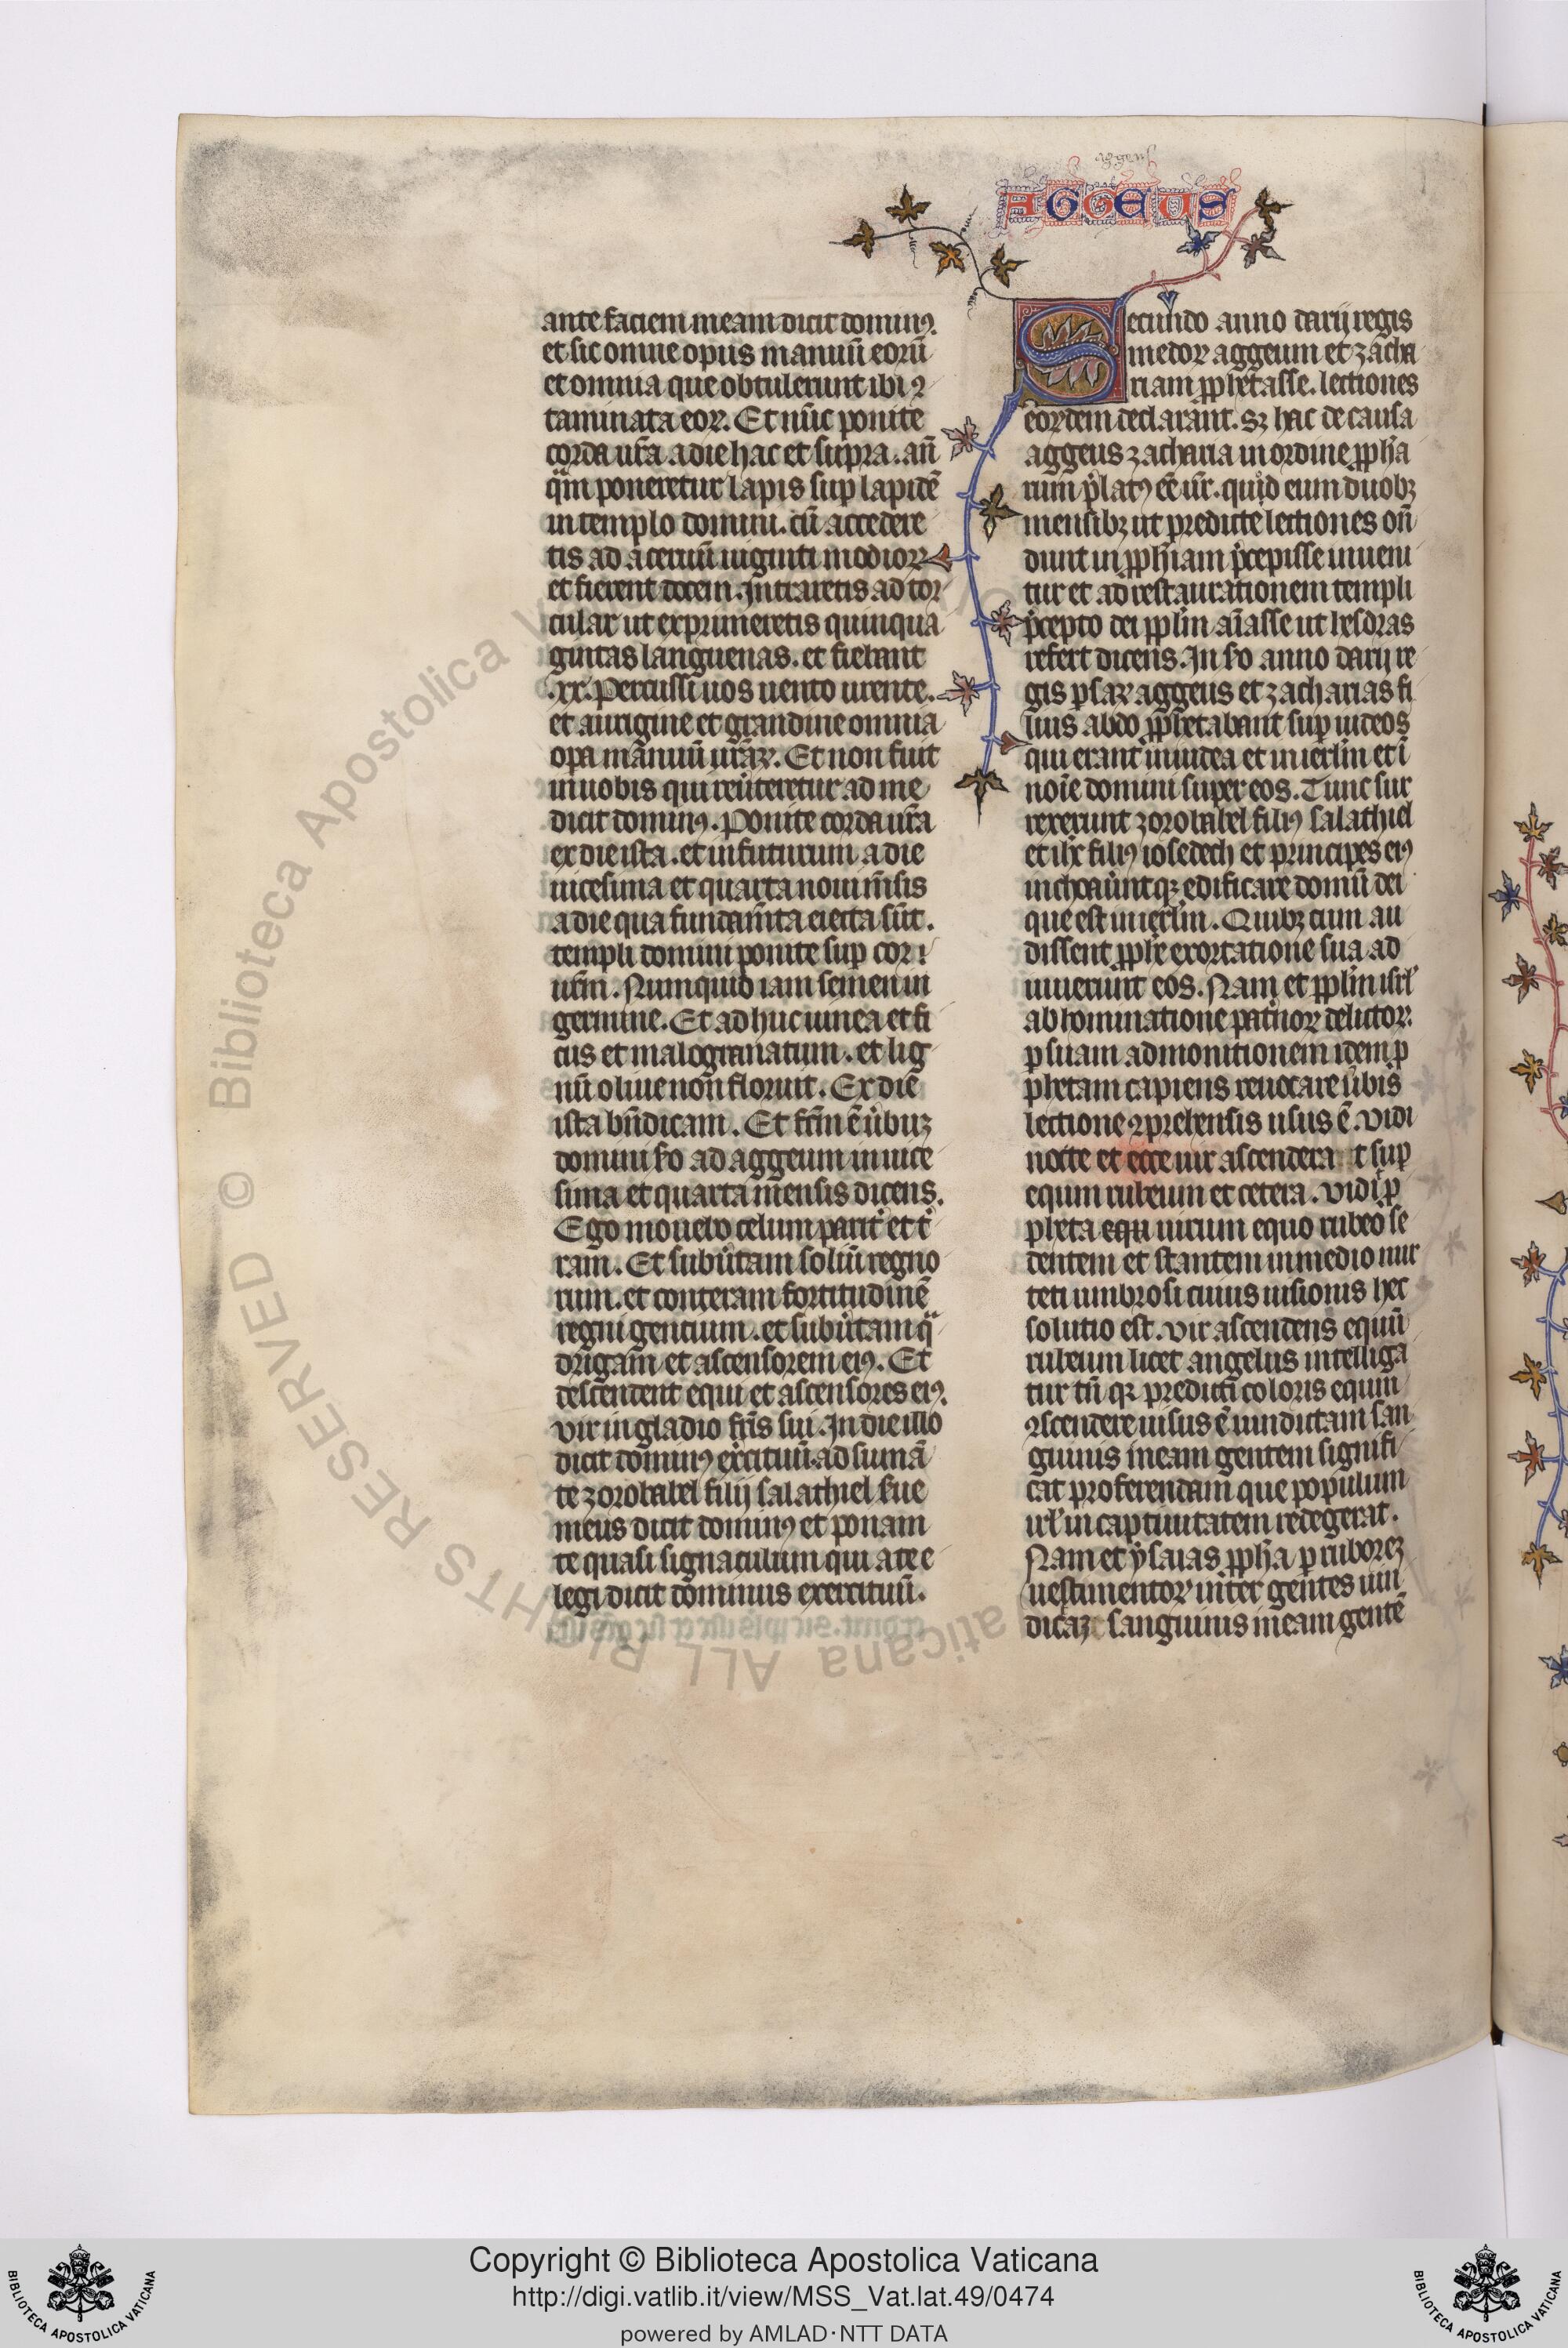 AGGEUS
ante faciem meam dicit dominꝰ.
et sic omne opus manuū eorū
et omnia que obtulerunt ibi ꝯ
taminata eoꝝ. Et nūc ponite
corda ur̄a a die hac et supra. an̄
q̄m poneretur lapis sup lapidē
in templo domini. cū accedere
tis ad aceruū uiginti modioꝝ
et fierent decem. Intraretis ad tor
cular ut exprimeretis quinqua
gintas languenas. et fiebant
.xx. Percussi uos uento urente.
et aurigine et grandine omnia
opa manuū ur̄aꝝ. Et non fuit
in uobis qui reu͛teretur ad me
dicit dominꝰ. Ponite corda ur̄a
ex die ista. et in futurum a die
uicesima et quarta noui m̄sis
a die qua fundam̄ta eiecta sūt.
templi domini ponite sup cor
ur̄m. Numquid iam semen in
germine. Et ad huc uinea et fi
cus et malogranatum. et lig
nū oliue non floruit. Ex die
ista bn̄dicam. Et fc̄m ē u͛buꝫ
domini so ad aggeum in uice
sima et quarta mensis dicens.
Ego mouebo celum parit͛ et t͛
ram. Et subu͛tam soliū regno
rum. et conteram fortitudinē
regni gentium. et subu͛tam qᷓ
drigam et ascensorem eiꝰ. Et
descendent equi et ascensores eiꝰ.
vir in gladio fr̄is sui. In die illo
dicit dominꝰ ex͛cituū. adsumā
te zorobabel filij salathiel sue
meus dicit dominꝰ et ponam
te quasi signaculum qui a te e
legi dicit dominus exercituū.
Secundo anno darij regis
medoꝝ aggeum et zacha
riam ꝓphetasse. lectiones
eoꝝdem declarant. sꝫ hac de causa
aggeus zacharia in ordine ꝓph̄a
rum p͛latꝰ eē ur̄. quid eum duobꝫ
mensibꝫ ut predicte lectiones on̄
dunt in ꝓph̄iam p͛cepisse inueni
tur et ad restaurationem templi
p͛cepto dei pplm̄ aīasse ut hesdras
refert dicens. In so anno darij re
gis psaꝝ aggeus et zacharias fi
lius abdo ꝓphetabant sup iudeos
qui erant in iudea et in ierlm̄ et ī
noīe domini super eos. Tunc sur
rexerunt zorobabel filiꝰ salathiel
et ih̄c filiꝰ iosedech et principes eiꝰ
inchoau͛unt qꝫ edificare domū dei
que est in ierlm̄. Quibꝫ cum au
dissent ꝓphe exortatione sua ad
iuuerunt eos. Nam et pplm̄ isrl̄
ab hominatione patrioꝝ delictoꝝ
ꝑ suam admonitionem idem ꝓ
phetam capiens reuocare u͛bis
lectione ꝯprehensis usus ē. vidi
nocte et ecce uir ascendera t sup
equm rubeum et cetera. vidi ꝓ
pheta equ uirum equo rubeo se
dentem et stantem in medio mir
teti umbrosi cuius uisionis hec
solutio est. vir ascendens equū
rubeum licet angelus intelliga
tur tn̄ qꝫ predicti coloris equm
ꝯscendere uisus ē uindictam san
guinis in eam gentem signifi
cat proferendam que populum
irl̄ in captiuitatem redegerat.
Nam et ysaias ꝓph̄a ꝓ ruboreꝫ
uestimentoꝝ inter gentes uin
dicaꝫ sanguinis in eam gentē
© Biblioteca Apostolica Vaticana ALL RIGHTS RESERVED
Copyright © Biblioteca Apostolica Vaticana
http://digi.vatlib.it/view/MSS_Vat.lat.49/0474
powered by AMLAD·NTT DATA
BIBLIOTECA APOSTOLICA VATICANA
BIBLIOTECA APOSTOLICA VATICANA